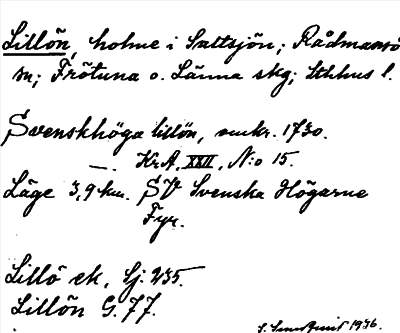 Lillön, holme i Saltsjön; Rådmansö
sn; Frötuna o. Länna skg; Sthlms l.
Svenskhöga lillön, omkr. 1730.
—. Kr.A. XXII, N:o 15.
Läge 3,9 km. SV Svenska Högarne
Fyr.
Lillö ek, Sj: 235.
Lillön G. 77.
1936.